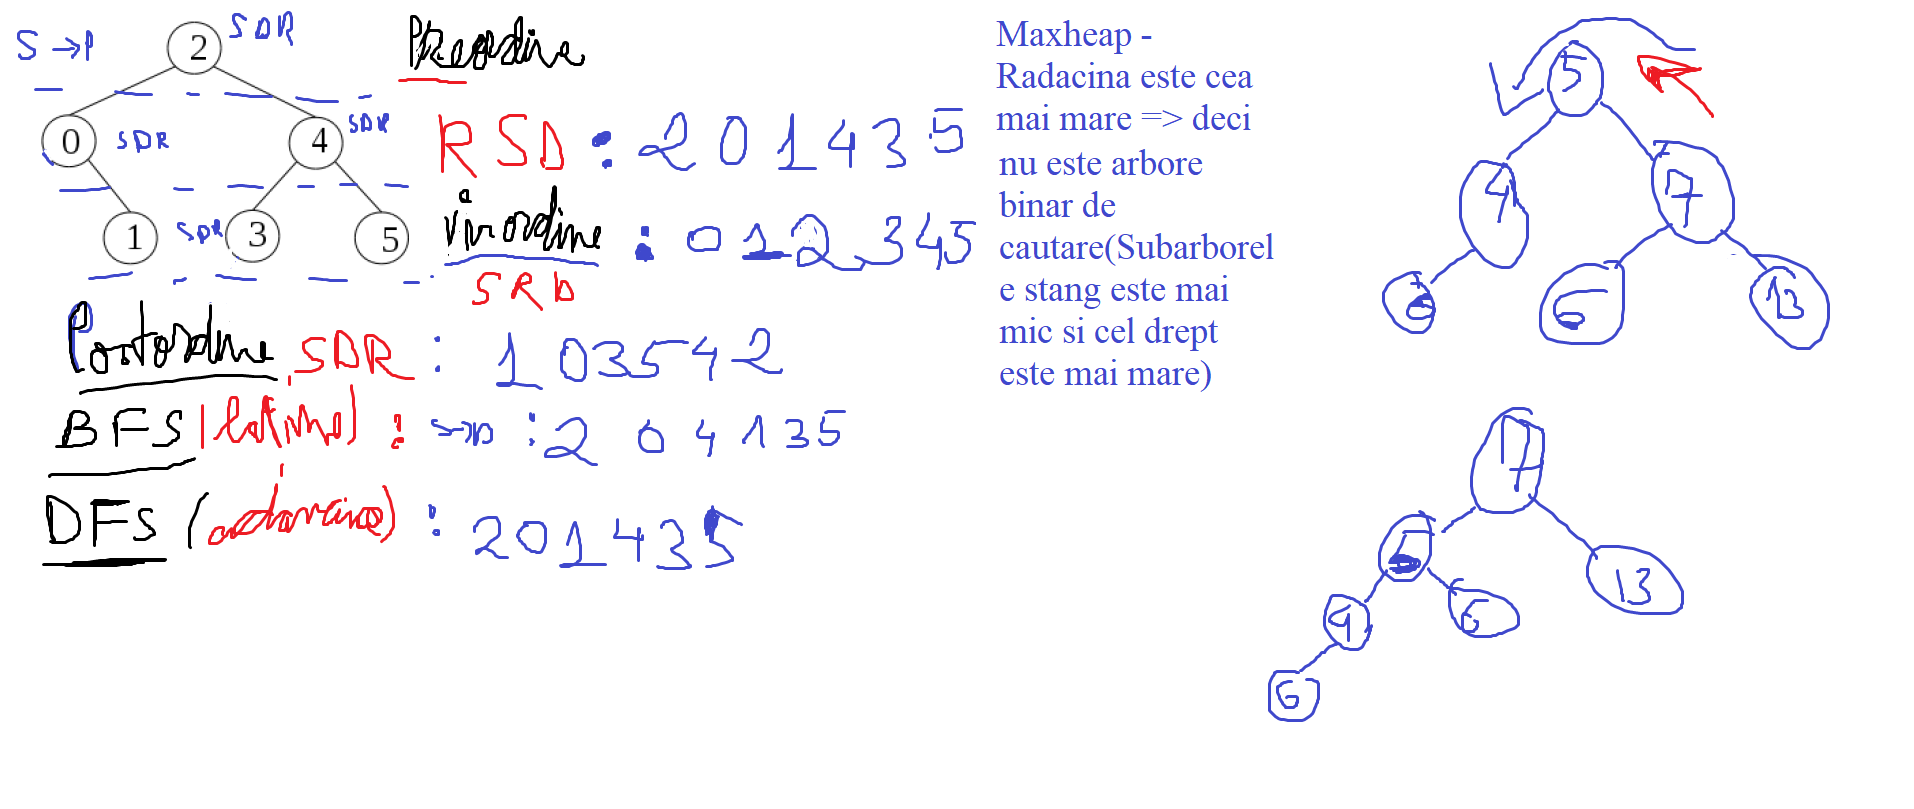 S → P
2
SDR
0
SDR
4
SDR
1
SDR
3
5
Preordine
RSD : 2 0 1 4 3 5
inordine : 0 1 2 3 4 5
SRD
Postordine SDR : 1 0 3 5 4 2
BFS | latime) : S→D : 2 0 4 1 3 5
DFS (adancime) : 2 0 1 4 3 5
Maxheap -
Radacina este cea
mai mare => deci
nu este arbore
binar de
cautare(Subarborel
e stang este mai
mic si cel drept
este mai mare)
5
4
7
13
17
5
13
6
6